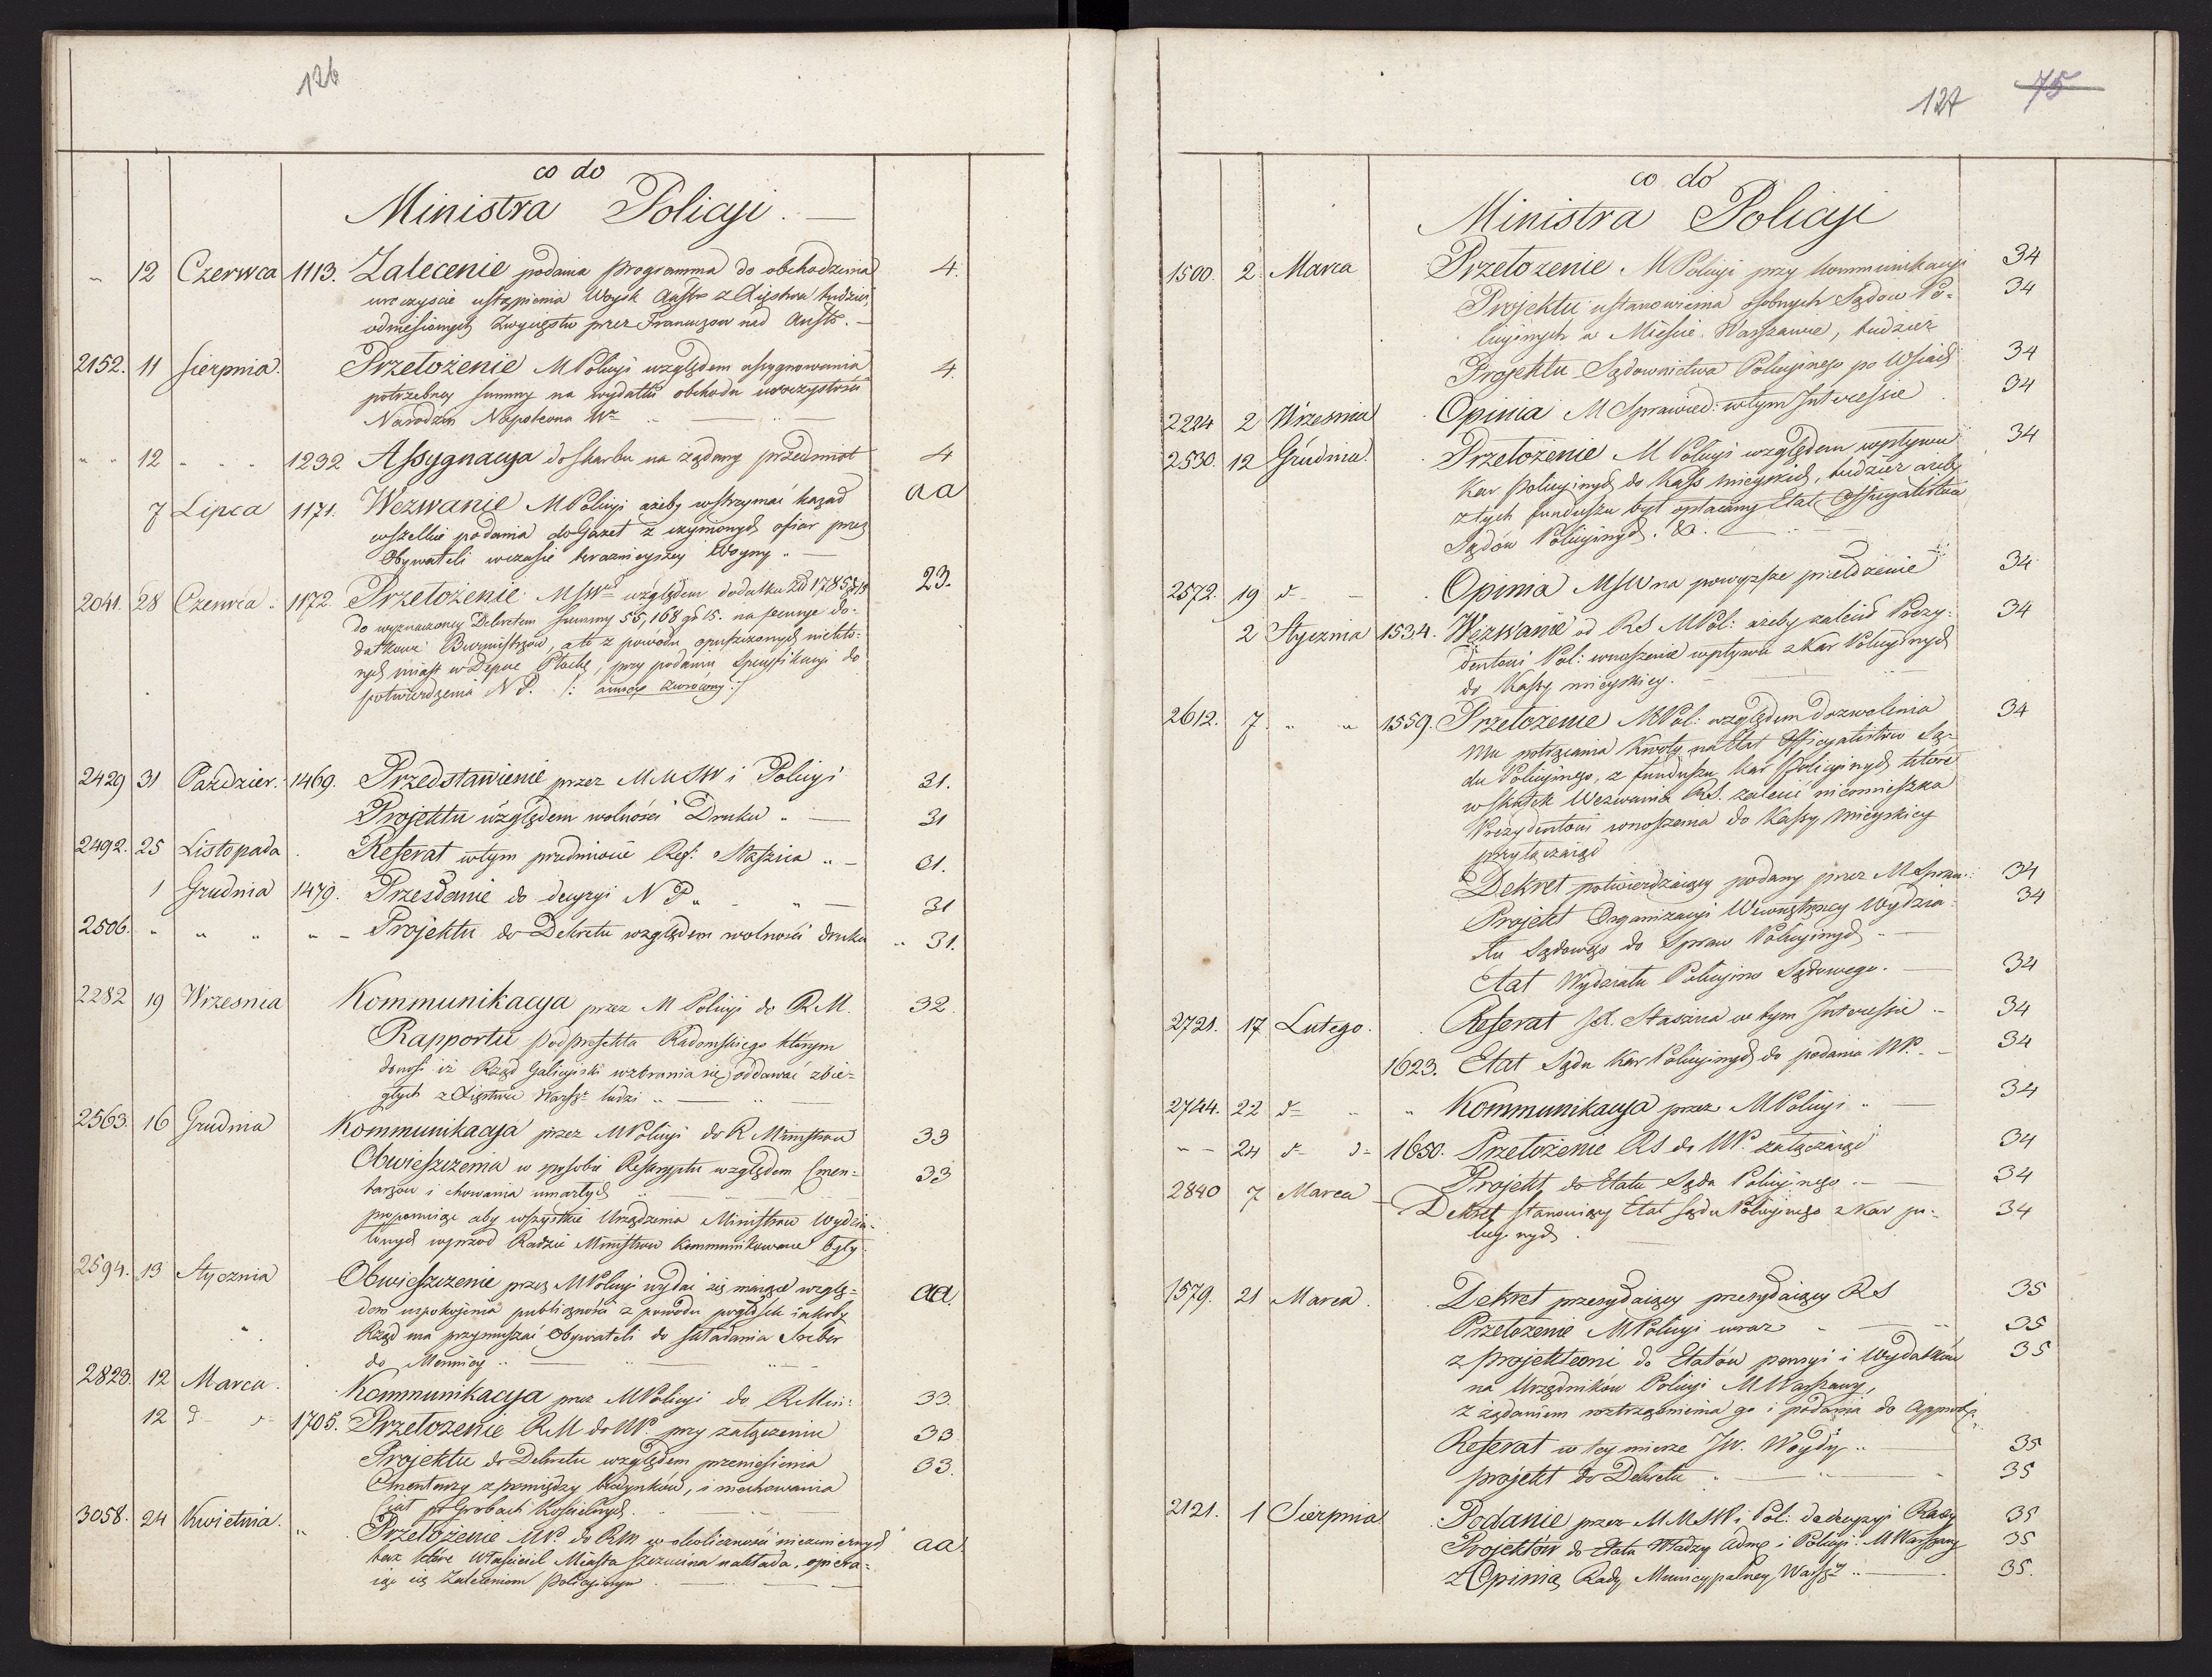 126
co do
Ministra Policyi. —
" 12 Czerwca 1113. Zalecenie podania programma do obchodzenia 4.
uroczyście ustąpienia Woysk Austr z Xięstwa tudzież
odniesionych Zwycięstw przez Francuzow nad Austr. —
2152. 11 Sierpnia. Przełożenie M Policyi względem assygnowania 4.
potrzebney summy na wydatki obchodu uroczystości
Narodzin Napoleona Wgo
" " 12 " " " 1232 Assygnacya do Skarbu na żądany przedmiot 4
7 Lipca 1171. Wezwanie M Policyi ażeby wstrzymać kazał aa
wszelkie podania do Gazet z czynionych ofiar przez
Obywateli wczasie teraznieyszey Woyny " —
2041. 28 Czerwca " 1172. Przełożenie MSW względem dodatku Zł 1785
do wyznaczoney Dekretem summy 55,168 gr 15. na pensye do- 23.
datkowe Burmistrzow, a to z powodu opuszczonych niektó-
rych miast w Depcie Płockᵐ, przy podaniu Specyfikacyi do
potwierdzenia N P. /: annexa zwrócony :/
2429 31 Pazdzier. 1469. Przedstawienie przez M M SW i Policyi 31.
Projektu względem wolności Druku " — 31
2492. 25 Listopada Referat wtym przedmiocie Ref: Staszica " — 31.
1 Grudnia 1479. Przesłanie do decyzyi N P " — 31
2506. " " " " — Projektu do Dekretu względem wolności druku " 31.
2282 19 Wrzesnia Kommunikacya przez M Policyi do R M. 32.
Rapportu Podprefekta Radomskiego którym
donosi iż Rząd Galicyiski wzbrania się oddawać zbie-
głych z Xięstwa Warsz ludzi " —
2563. 16 Grudnia Kommunikacya przez M Policyi do R Ministrow 33
Obwieszczenia w sposobie Reskryptu względem Cmen- 33
tarzow i chowania umarłych
proponuiąc aby wszystkie Urządzenia Ministrow Wydzia-
łowych wprzod Radzie Ministrow kommunikowane były
2594. 13 Stycznia Obwieszczenie przez M Policyi wydać się maiące wzglę- aa.
dem uspokojenia publiczności z powodu pogłosek iakoby
Rząd ma przymuszać Obywateli do składania Sreber
do Mennicy " —
2823. 12 Marca. Kommunikacya przez M Policyi do R Min: 33.
12 d — 1705. Przełożenie RM do NP. przy załączeniu 33
Projektu do Dekretu względem przeniesienia 33.
Cmentarzy z pomiędzy budynków, i niechowania
Ciał po Grobach Kościelnych.
3058. 24 Kwietnia. " Przełożenie NP. do RM w okoliczności niezmiernych aa
tax które Właściciel Miasta Szczucina nakłada, opiera-
iąc się Zaleceniom Policyinym
127 75
co do
Ministra Policyi
1500. 2 Marca Przełożenie M Policyi przy kommunikacyi 34
Projektu ustanowienia osobnych Sądow Po- 34
licyinych w Mieście Warszawie, tudzież
Projektu Sądownictwa Policyinego po Wsiach 34
2224 2 Wrzesnia Opinia M Sprawied: wtym Interessie 34
2530. 12 Grudnia. Przełożenie M Policyi względem wpływu 34
Kar Policyinych do Kass mieyskich, tudzież ażeby
ztych funduszu był opłacany Etat Officyalistow
Sądów Policyinych. &. —
2572. 19 d — Opinia MSW na powyższe przełożenie 34
2 Stycznia 1534. Wezwanie od RS MPol: ażeby zalecił Prezy- 34
dentowi Pol: wnoszenie wpływu z Kar Policyinych
do Kassy mieyskiey. —
2612. 7 " " 1559. Przełożenie MPol: względem dozwolenia 34
mu potrącania Kwoty na Etat Officyalistow Są-
du Policyinego, z funduszu kar Policyinych które
wskutek Wezwania RS. zalecić nieomieszka
Prezydentowi wnoszenia do Kassy mieyskiey
przyłączaiąc
Dekret potwierdzaiący podany przez M Spraw: 34
Projekt Organizacyi Wewnętrzney Wydzia- 34
łu Sądowego do Spraw Policyinych —
Etat Wydziału Policyino Sądowego. — 34
2721. 17 Lutego. Referat JX. Staszica w tym Interessie — 34
1623. Etat Sądu Kar Policyinych do podania NP. — 34
2744. 22 d — " Kommunikacya przez M Policyi " — 34
" — 24 d — 1650. Przełożenie RS do NP. załączaiąc 34
Projekt do Etatu Sądu Policyinego. — 34
2840 7 Marca Dekret stanowiący Etat Sądu Policyinego z Kar po- 34
licyi nych
1579. 21 Marca. Dekret przesyłaiący przesyłaiący RS 35
Przełożenie M Policyi wraz — 35
z projektami do Etatów pensyi i Wydatków 35
na Urzędników Policyi M Warszawy,
z żądaniem roztrząśnienia go i podania do approb:
Referat w tey mierze JW. Woydy " 35
projekt do Dekretu " — 35
2121. 1 Sierpnia. Podanie przez M M SW i Pol: do decyzyi Rady 35
Projektów do Etatu Władzy Adm i Policyi M Warszawy 35
z Opinią Rady Municypalney Warsz " — 35.